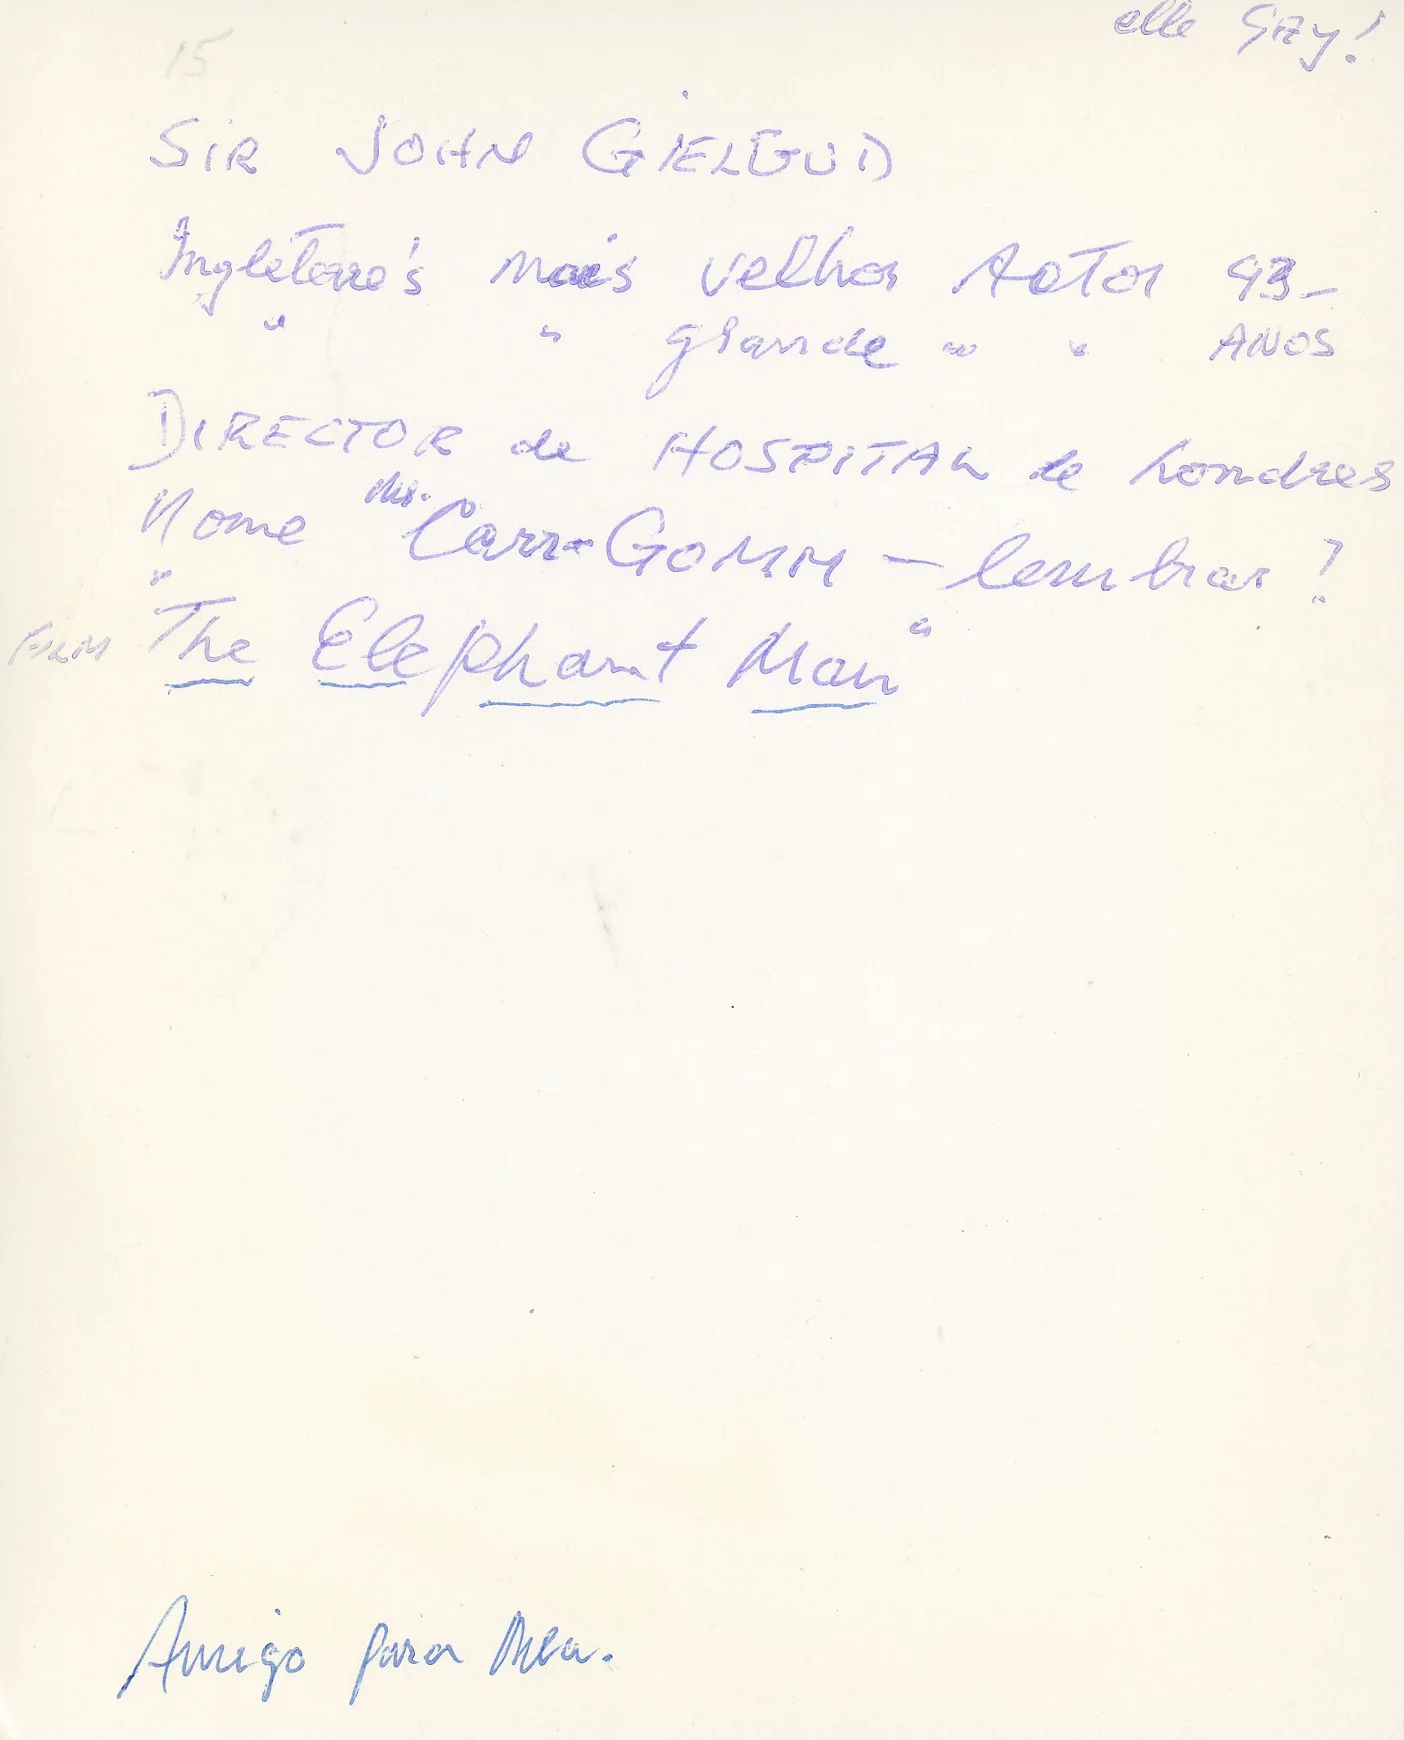 elle GAY!
15
SIR JOHN GIELGUD
Ingleterre's mais velhor Actor 93-
" " grande " " ANOS
DIRECTOR de HOSPITAL de Londres
Nome Mr. Carr-GOMM - lembrar?
FILM "The Elephant Man"
Amigo para Mea.